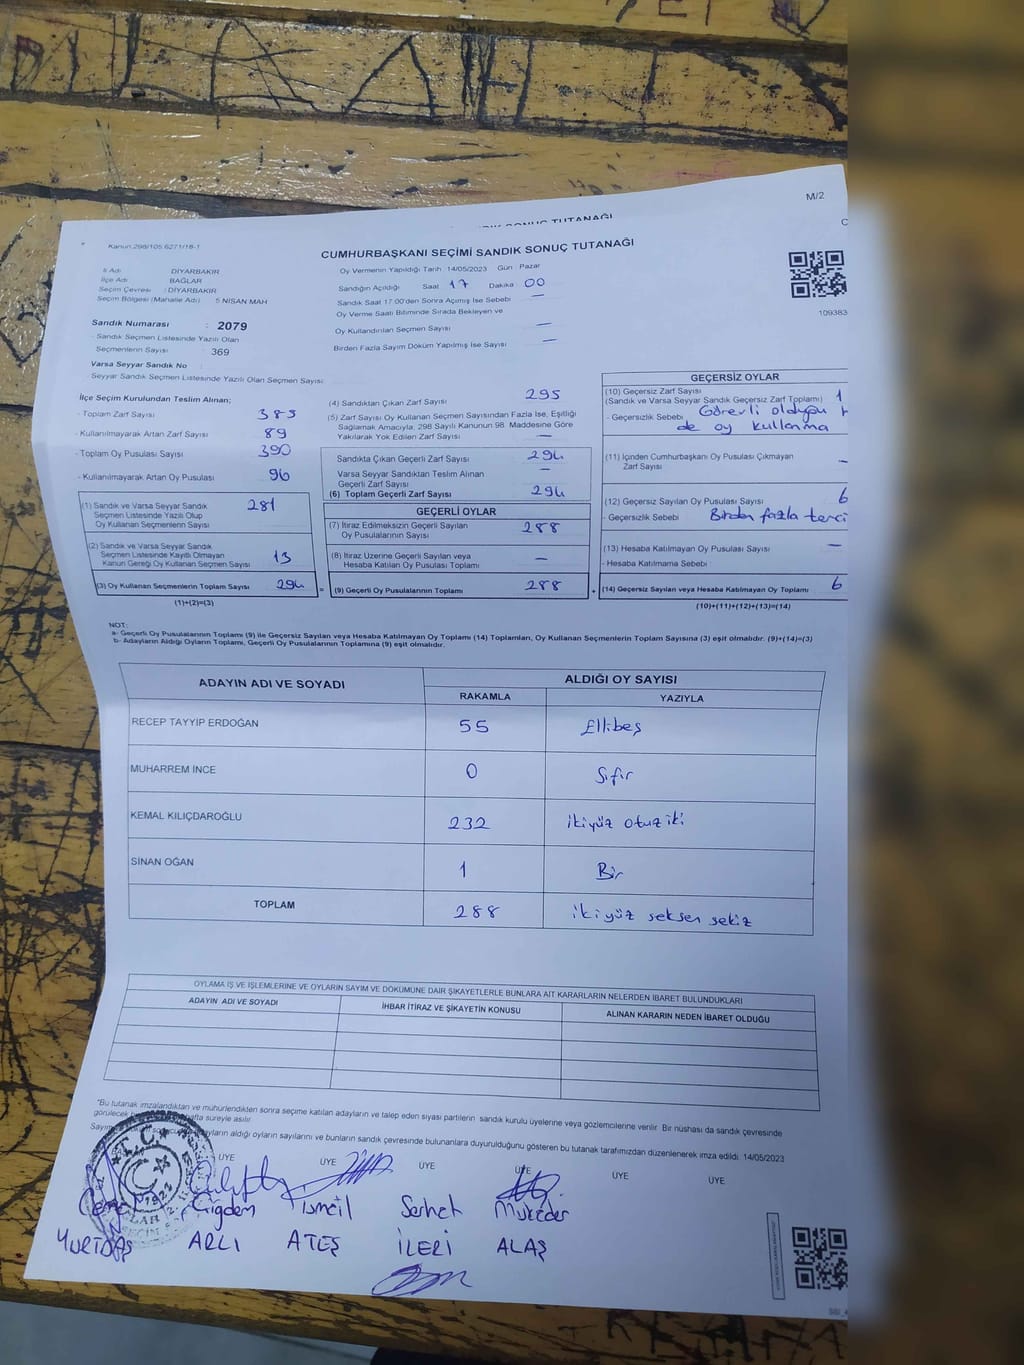 M/2
SONUÇ TUTANAĞI
Kanun:298/105.6271/18-1
CUMHURBAŞKANI SEÇİMİ SANDIK SONUÇ TUTANAĞI
İl Adı DİYARBAKIR
İlçe Adı BAĞLAR
Seçim Çevresi : DİYARBAKIR
Seçim Bölgesi (Mahalle Adı) 5 NİSAN MAH
Sandık Numarası : 2079
- Sandık Seçmen Listesinde Yazılı Olan
Seçmenlerin Sayısı : 369
Varsa Seyyar Sandık No :
Seyyar Sandık Seçmen Listesinde Yazılı Olan Seçmen Sayısı:
Oy Vermenin Yapıldığı Tarih 14/05/2023 Gün : Pazar
Sandığın Açıldığı Saat 17 Dakika 00
Sandık Saat 17.00'den Sonra Açımış İse Sebebi —
Oy Verme Saati Bitiminde Sırada Bekleyen ve
Oy Kullandırılan Seçmen Sayısı —
Birden Fazla Sayım Döküm Yapılmış İse Sayısı —
109383
İlçe Seçim Kurulundan Teslim Alınan;
- Toplam Zarf Sayısı 383
- Kullanılmayarak Artan Zarf Sayısı 89
- Toplam Oy Pusulası Sayısı 390
- Kullanılmayarak Artan Oy Pusulası 96
(1) Sandık ve Varsa Seyyar Sandık 281
Seçmen Listesinde Yazılı Olup
Oy Kullanan Seçmenlerin Sayısı
(2) Sandık ve Varsa Seyyar Sandık
Seçmen Listesinde Kayıtlı Olmayan 13
Kanun Gereği Oy Kullanan Seçmen Sayısı
(3) Oy Kullanan Seçmenlerin Toplam Sayısı 294
(1)+(2)=(3)
(4) Sandıktan Çıkan Zarf Sayısı 295
(5) Zarf Sayısı Oy Kullanan Seçmen Sayısından Fazla İse, Eşitliği
Sağlamak Amacıyla, 298 Sayılı Kanunun 98. Maddesine Göre
Yakılarak Yok Edilen Zarf Sayısı —
Sandıkta Çıkan Geçerli Zarf Sayısı 294
Varsa Seyyar Sandıktan Teslim Alınan —
Geçerli Zarf Sayısı
(6) Toplam Geçerli Zarf Sayısı 294
GEÇERLİ OYLAR
(7) İtiraz Edilmeksizin Geçerli Sayılan 288
Oy Pusulalarının Sayısı
(8) İtiraz Üzerine Geçerli Sayılan veya —
Hesaba Katılan Oy Pusulası Toplamı
= (9) Geçerli Oy Pusulalarının Toplamı 288
GEÇERSİZ OYLAR
(10) Geçersiz Zarf Sayısı
(Sandık ve Varsa Seyyar Sandık Geçersiz Zarf Toplamı) 1
- Geçersizlik Sebebi Görevli olduğuna
de oy kullanma
(11) İçinden Cumhurbaşkanı Oy Pusulası Çıkmayan
Zarf Sayısı —
(12) Geçersiz Sayılan Oy Pusulası Sayısı 6
- Geçersizlik Sebebi Birden fazla terci
(13) Hesaba Katılmayan Oy Pusulası Sayısı —
- Hesaba Katılmama Sebebi
+ (14) Geçersiz Sayılan veya Hesaba Katılmayan Oy Toplamı 6
(10)+(11)+(12)+(13)=(14)
NOT:
a- Geçerli Oy Pusulalarının Toplamı (9) ile Geçersiz Sayılan veya Hesaba Katılmayan Oy Toplamı (14) Toplamları, Oy Kullanan Seçmenlerin Toplam Sayısına (3) eşit olmalıdır. (9)+(14)=(3)
b- Adayların Aldığı Oyların Toplamı, Geçerli Oy Pusulalarının Toplamına (9) eşit olmalıdır.
ADAYIN ADI VE SOYADI ALDIĞI OY SAYISI
RAKAMLA YAZIYLA
RECEP TAYYİP ERDOĞAN 55 Ellibeş
MUHARREM İNCE 0 Sıfır
KEMAL KILIÇDAROĞLU 232 ikiyüz otuz iki
SİNAN OĞAN 1 Bir
TOPLAM 288 ikiyüz seksen sekiz
OYLAMA İŞ VE İŞLEMLERİNE VE OYLARIN SAYIM VE DÖKÜMÜNE DAİR ŞİKAYETLERLE BUNLARA AİT KARARLARIN NELERDEN İBARET BULUNDUKLARI
ADAYIN ADI VE SOYADI İHBAR İTİRAZ VE ŞİKAYETİN KONUSU ALINAN KARARIN NEDEN İBARET OLDUĞU
"Bu tutanak imzalandıktan ve mühürlendikten sonra seçime katılan adayların ve talep eden siyasi partilerin sandık kurulu üyelerine veya gözlemcilerine verilir. Bir nüshası da sandık çevresinde
görülecek hafta süreyle asılır.
Sayım aldığı oyların sayılarını ve bunların sandık çevresinde bulunanlara duyurulduğunu gösteren bu tutanak tarafımızdan düzenlenerek imza edildi. 14/05/2023
ÜYE ÜYE ÜYE ÜYE ÜYE ÜYE
T.C.
Çiğdem İsmail Serhat Mukader
YURTDAŞ ARLI ATEŞ İLERİ ALAŞ